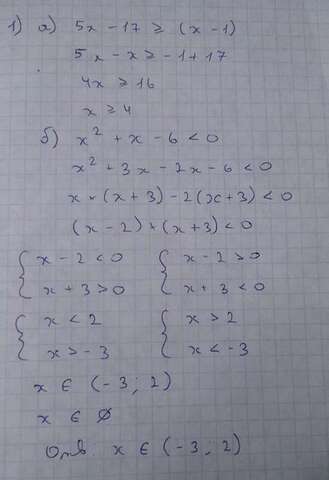 1) а) 5x - 17 ≥ (x - 1)
5x - x ≥ -1 + 17
4x ≥ 16
x ≥ 4
б) x² + x - 6 < 0
x² + 3x - 2x - 6 < 0
x × (x + 3) - 2(x + 3) < 0
(x - 2) × (x + 3) < 0
{ x - 2 < 0 { x - 2 > 0
x + 3 > 0 x + 3 < 0
{ x < 2 { x > 2
x > -3 x < -3
x ∈ (-3; 2)
x ∈ ∅
Отв. x ∈ (-3; 2)